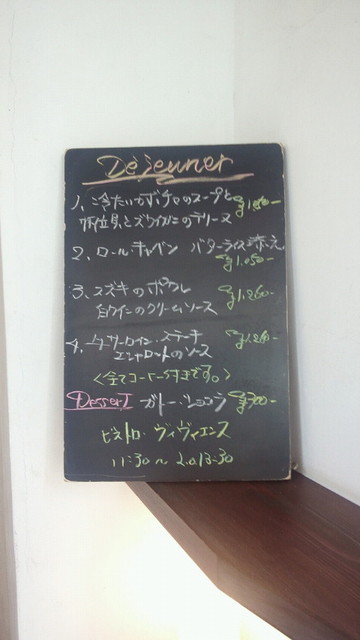 Déjeuner
1、冷たいカボチャのスープと ¥1,050-
帆立貝とズワイガニのテリーヌ
2、ロールキャベツ バターライス添え
¥1,050-
3、スズキのポワレ ¥1,260-
白ワインのクリームソース
4、牛サーロインステーキ ¥1,260-
エシャロットのソース
<全てコーヒー付きです。>
Dessert ガトーショコラ ¥300-
ビストロ・ヴィヴィエンヌ
11:30〜L.O.13:30